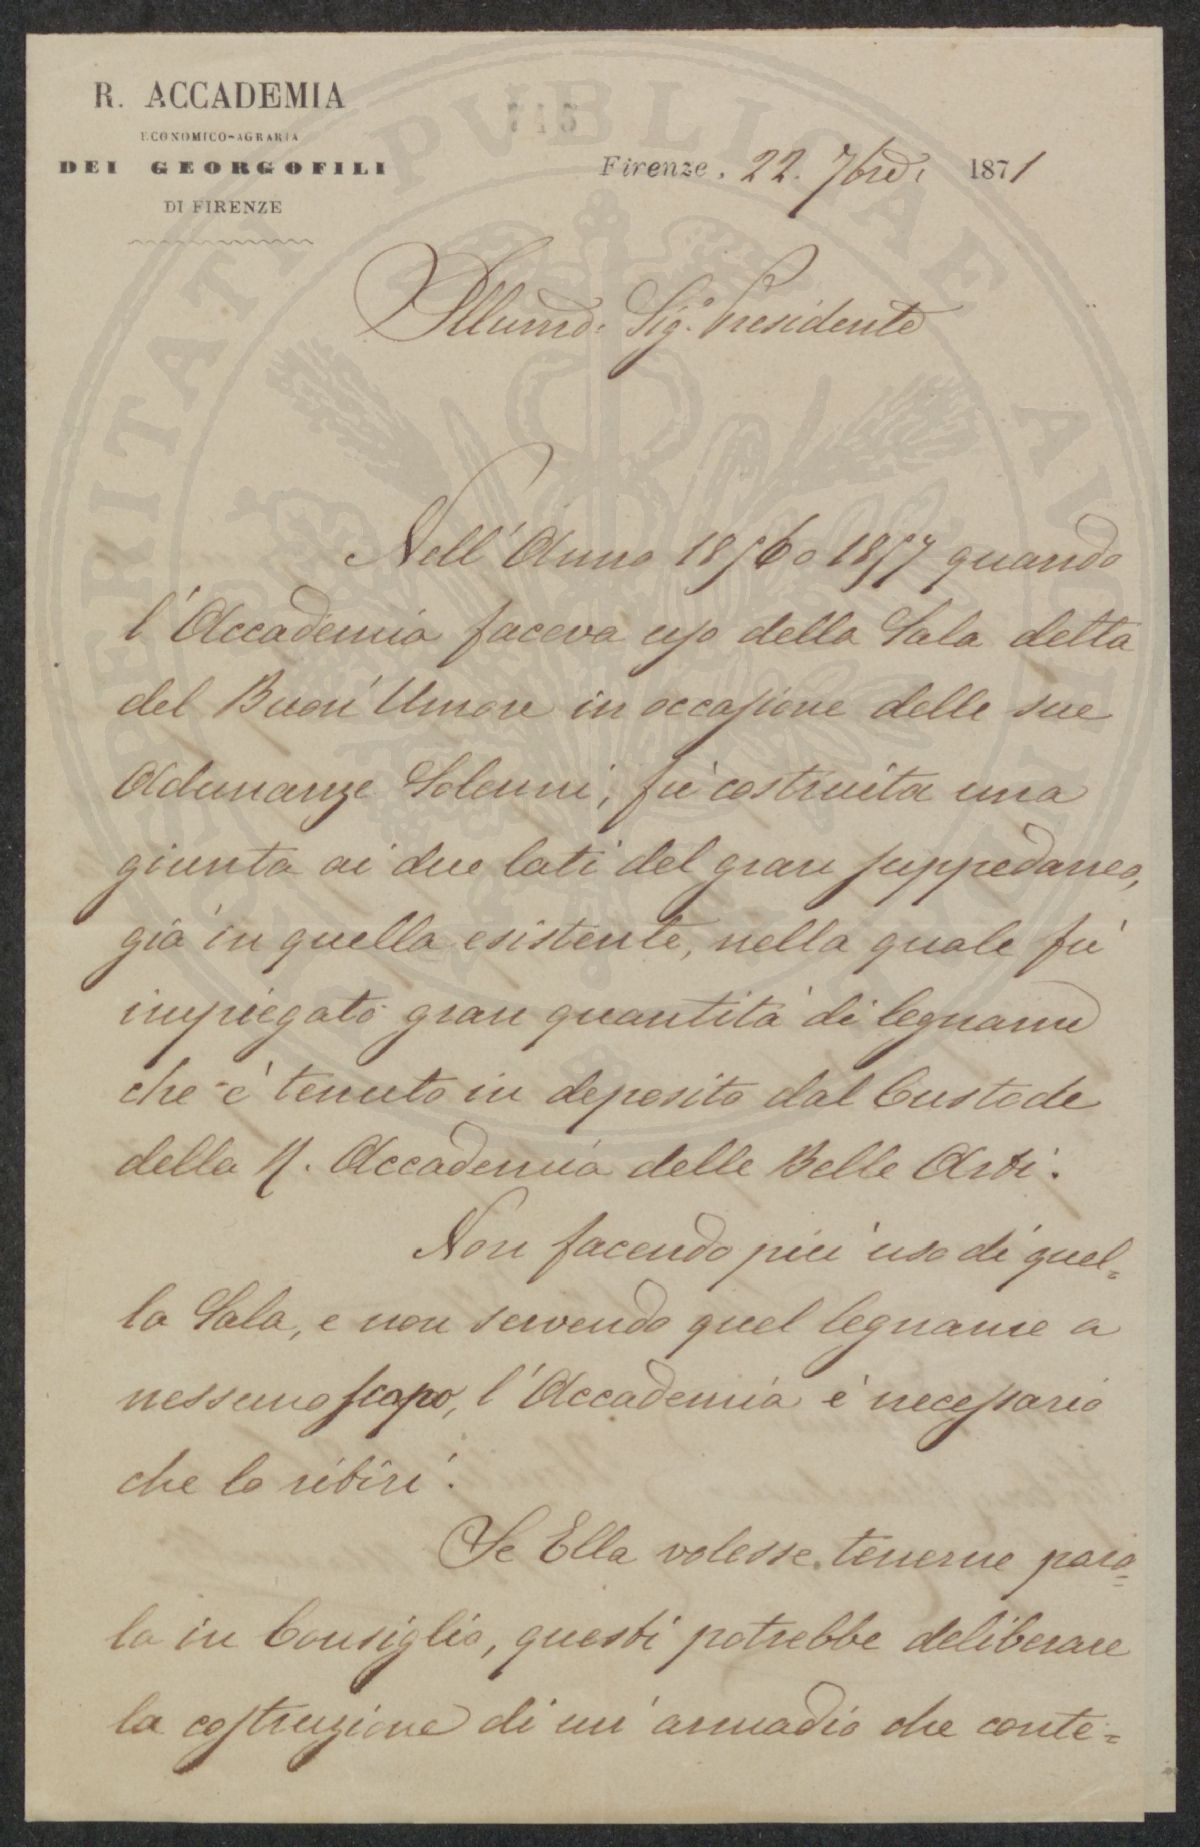 R. ACCADEMIA
ECONOMICO-AGRARIA
DEI GEORGOFILI
DI FIRENZE
Firenze, 22. 7bre 1871
Illumo. Sig. Presidente
Nell' Anno 1856 o 1857 quando
l' Accademia faceva uso della Sala detta
del Buon' Umore in occasione delle sue
Adunanze Solenni, fù costruita una
giunta ai due lati del gran suppedaneo,
già in quella esistente, nella quale fù
impiegato gran quantità di legname
che è tenuto in deposito dal Custode
della R. Accademia delle Belle Arti.
Non facendo più uso di quel=
la Sala, e non servendo quel legname a
nessuno scopo, l' Accademia è necessario
che lo ritiri.
Se Ella volesse tenerne paro=
la in Consiglio, questi potrebbe deliberare
la costruzione di un' armadio che conte=
PROSPERITATI PUBLICAE AUGENDAE